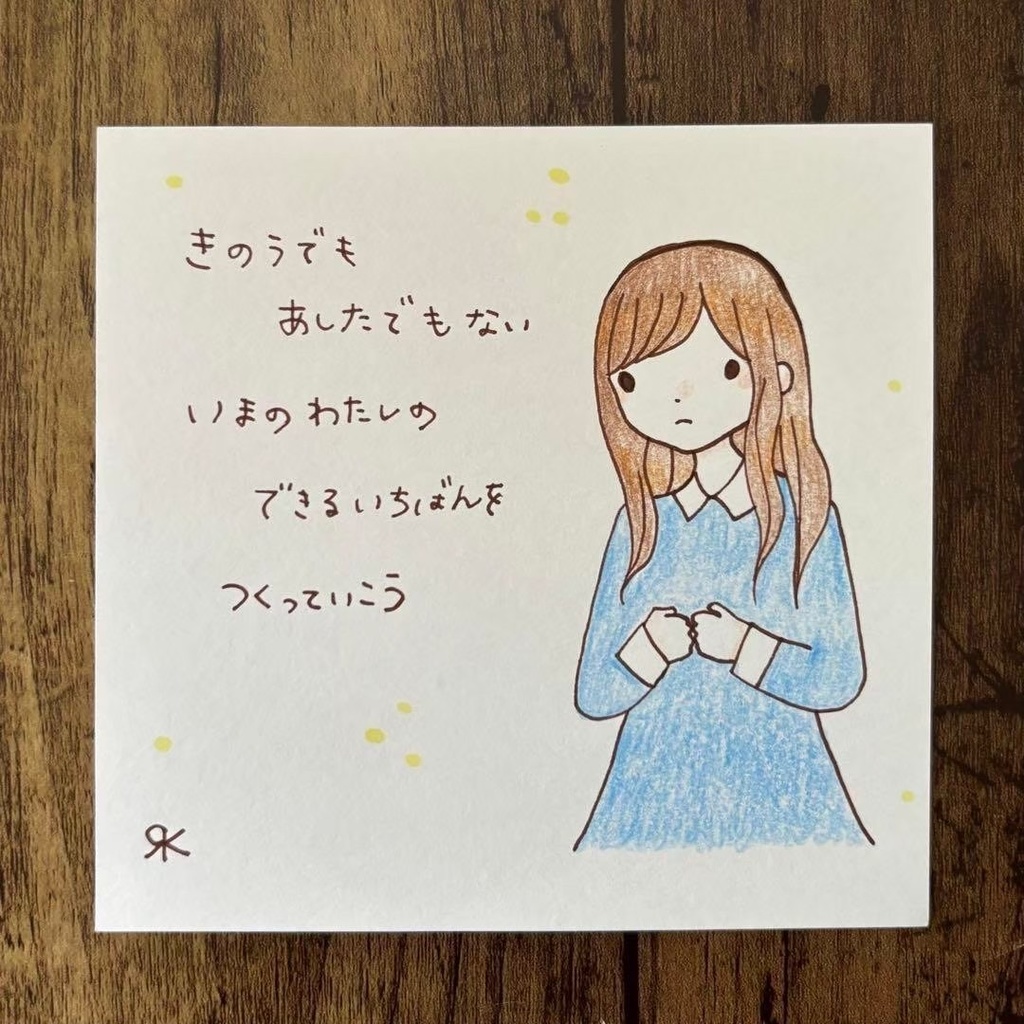 きのうでも
あしたでもない
いまのわたしの
できるいちばんを
つくっていこう